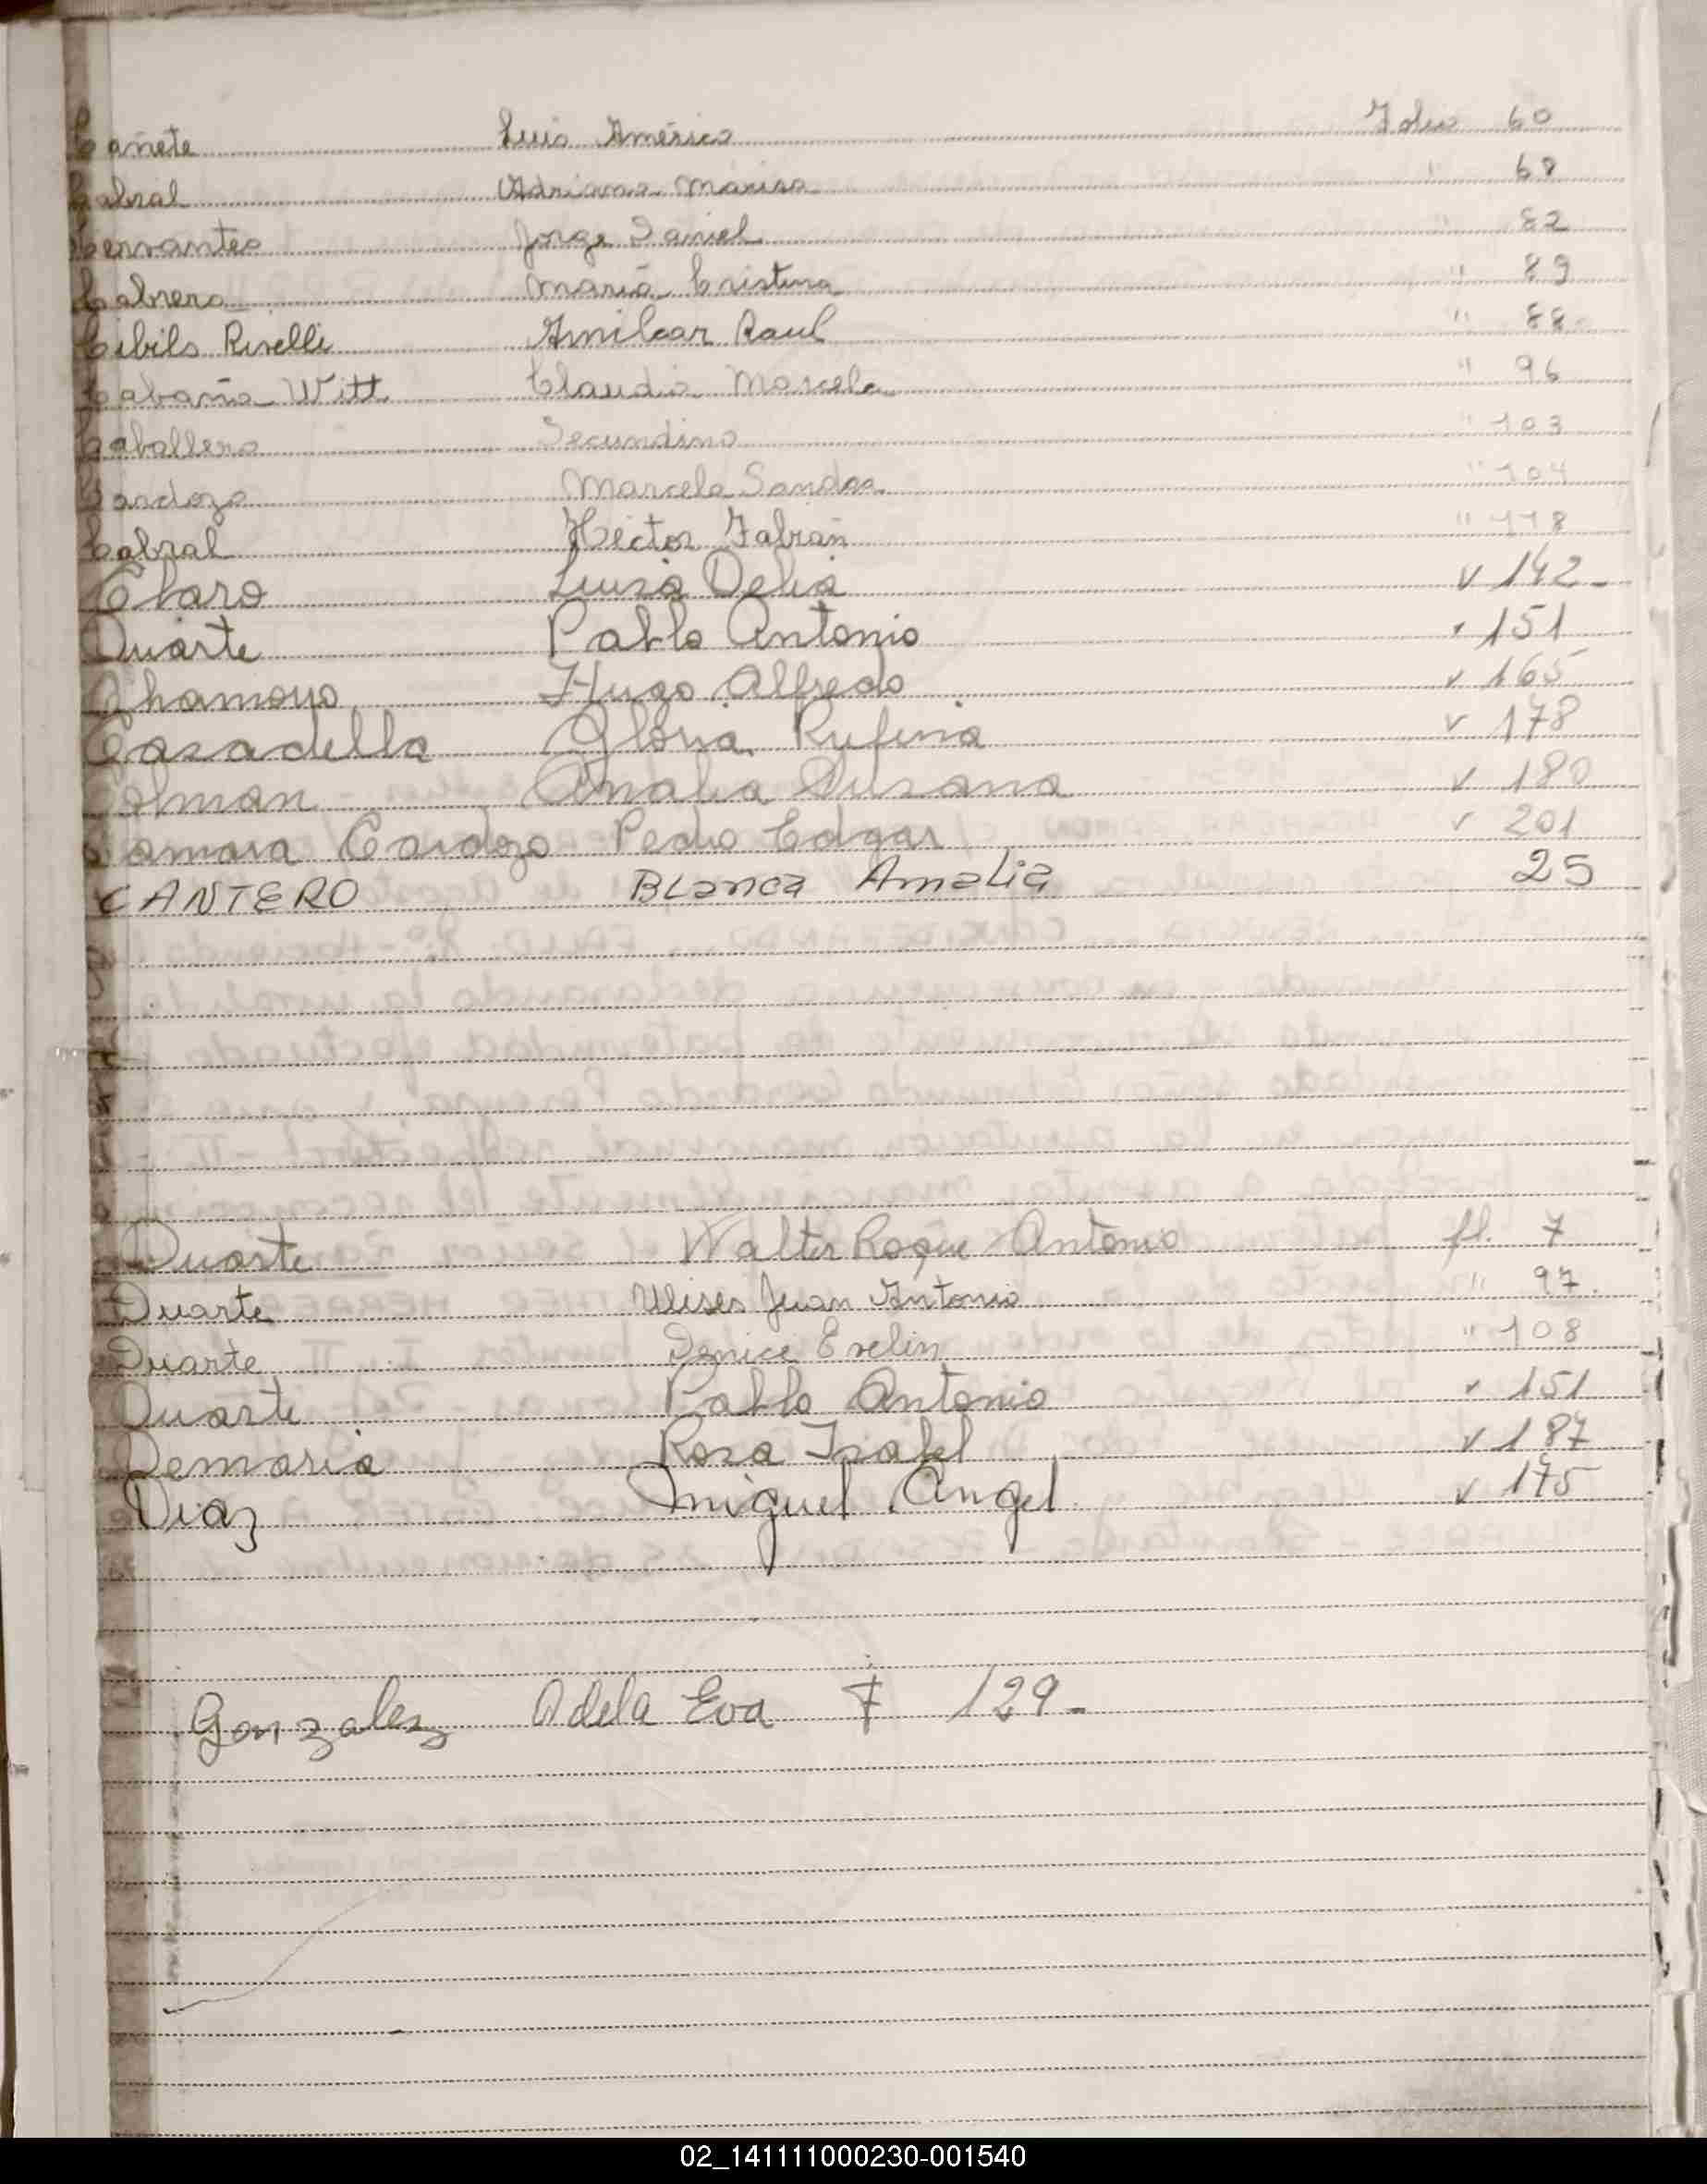 Cañete Luis Américo Folio 60
Cabral Adriana Marisa " 68
Cervantes Jorge Daniel " 82
Cabrera María Cristina " 89
Cibils Rivelli Amilcar Raul " 88
Cabaña Witt Claudia Marcela " 96
Caballero Secundino " 103
Cardozo Marcela Sandra " 104
Cabral Héctor Fabián " 118
Claro Luisa Delia v 142-
Duarte Pablo Antonio v 151
Chamoyo Hugo Alfredo v 165
Casadella Gloria Rufina v 178
Colman Analia Susana v 180
Camara Cardozo Pedro Edgar v 201
CANTERO BLanca AmaLia 25
Duarte Walter Roque Antonio fl. 7
Duarte Ulises Juan Antonio " 97.
Duarte Denice Evelin " 108
Duarte Pablo Antonio v 151
Demaria Rosa Isabel v 187
Diaz Miguel Angel v 175
Gonzalez Adela Eva F 129-
02_141111000230-001540